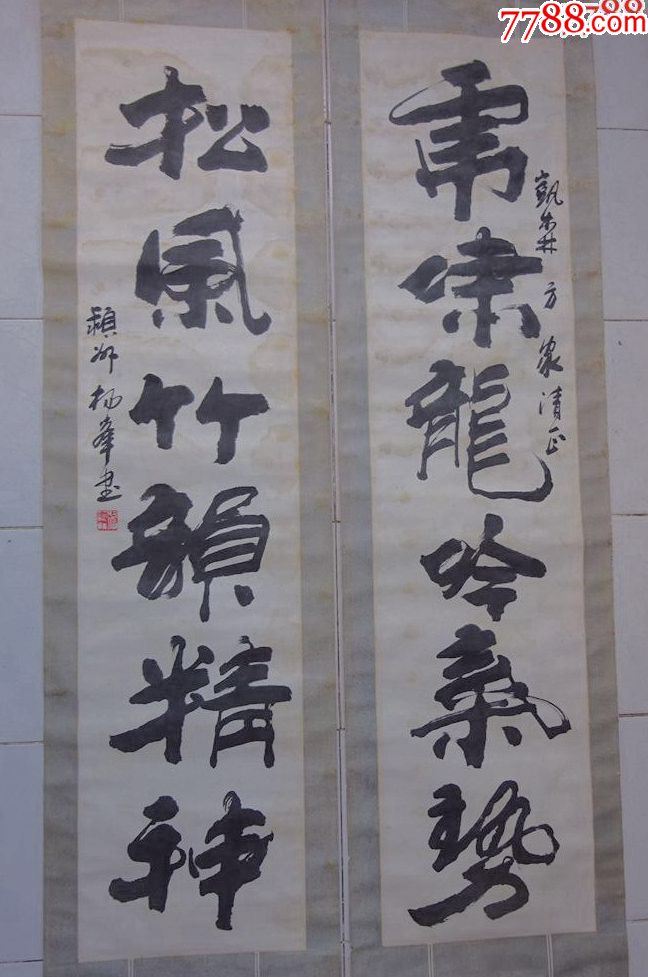 7788.com
虎啸龍吟氣勢
凱森方家清正
松風竹韻精神
穎州楊峰書